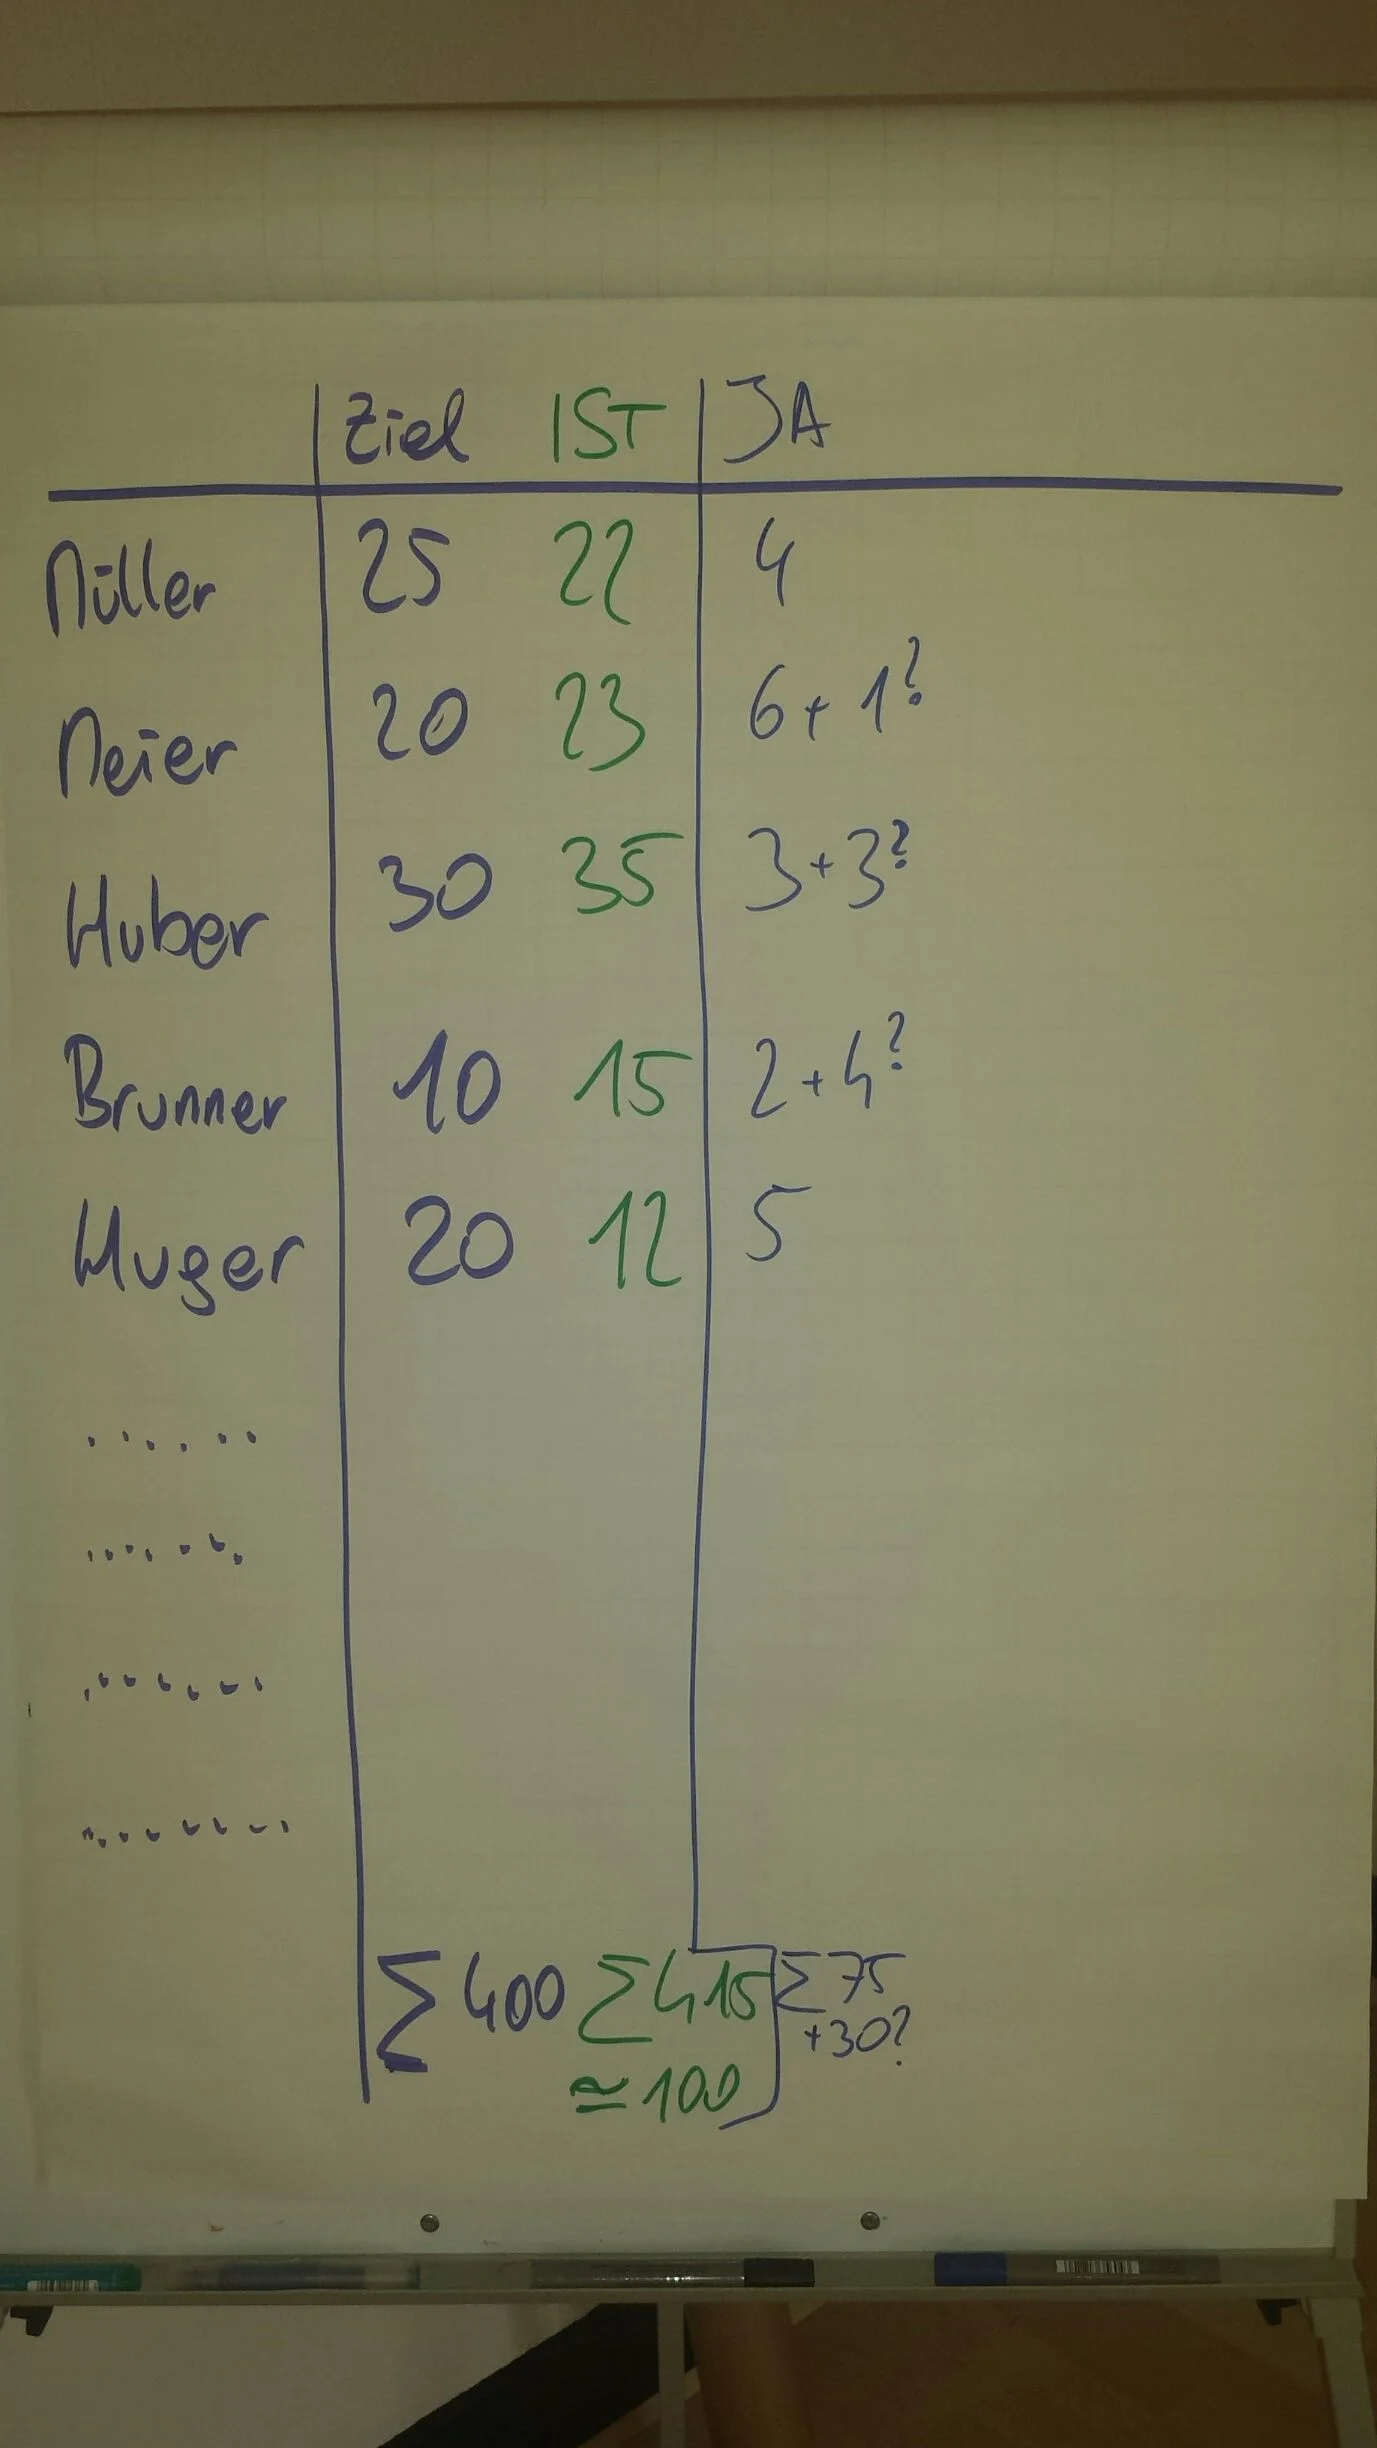 Ziel IST JA
Müller 25 22 4
Meier 20 23 6+1?
Huber 30 35 3+3?
Brunner 10 15 2+4?
Huger 20 12 5
......
.......
.......
........
Σ 400 Σ 415 Σ 75
+30?
≃ 100